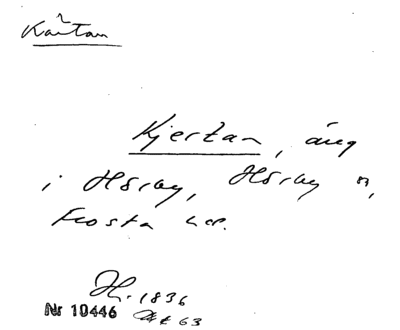 Kärtan
Kjertan, äng
i Hörby, Hörby sn,
Frosta hd.
1836
Nr 10446 Akt 63